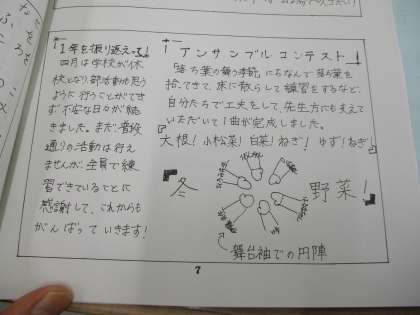 1年を振り返って!
四月は学校が休
校となり、部活動も思う
ように行うことができ
ず不安な日々が続
きました。まだ普段
通りの活動は行え
ませんが、全員で練
習できていることに
感謝して、これからも
がんばっていきます!
アンサンブルコンテスト
「落ち葉の舞う季節」にちなんで落ち葉を
拾ってきて、床に散らして練習をするなど、
自分たちで工夫をして、先生方にも支えて
いただいて1曲が完成しました。
『大根!小松菜!白菜!ねぎ!ゆず!ねぎ』
『冬 野菜!』
舞台袖での円陣
7